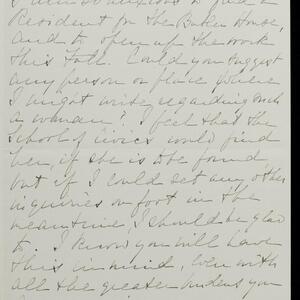 I am so anxious to find a
Resident for the Butler House,
and to open up the work
this Fall. Could you suggest
any person or place where
I might write regarding such
a woman? I feel that the
School of Civics would find
her, if she is to be found
but if I could set any other
inquiries on foot in the
meantime, I should be glad
to. I know you will have
this in mind, even with
all the greater burdens you